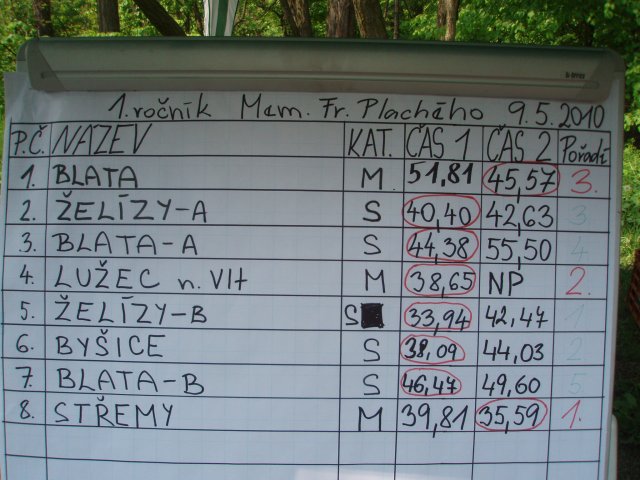 1. ročník Mem. Fr. Plachého 9.5.2010
P.Č. NÁZEV KAT. ČAS 1 ČAS 2 Pořadí
1. BLATA M 51,81 45,57 3.
2. ŽELÍZY-A S 40,40 42,63 3
3. BLATA-A S 44,38 55,50 4
4. LUŽEC n. Vlt M 38,65 NP 2.
5. ŽELÍZY-B S 33,94 42,47 1
6. BYŠICE S 38,09 44,03 2.
7. BLATA-B S 46,47 49,60 5
8. STŘEMY M 39,81 35,59 1.